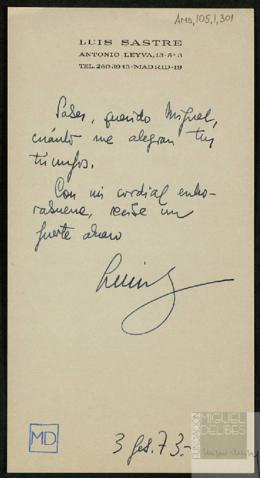 AMD,105,1,301
LUIS SASTRE
ANTONIO LEYVA, 13-8º-3
TEL. 260 39 43-MADRID-19
Sabes, querido Miguel,
cuánto me alegran tus
triunfos.
Con mi cordial enho-
rabuena, recibe un
fuerte abrazo
Luis
MD
3 feb. 73.-
FUNDACIÓN
MIGUEL
DELIBES